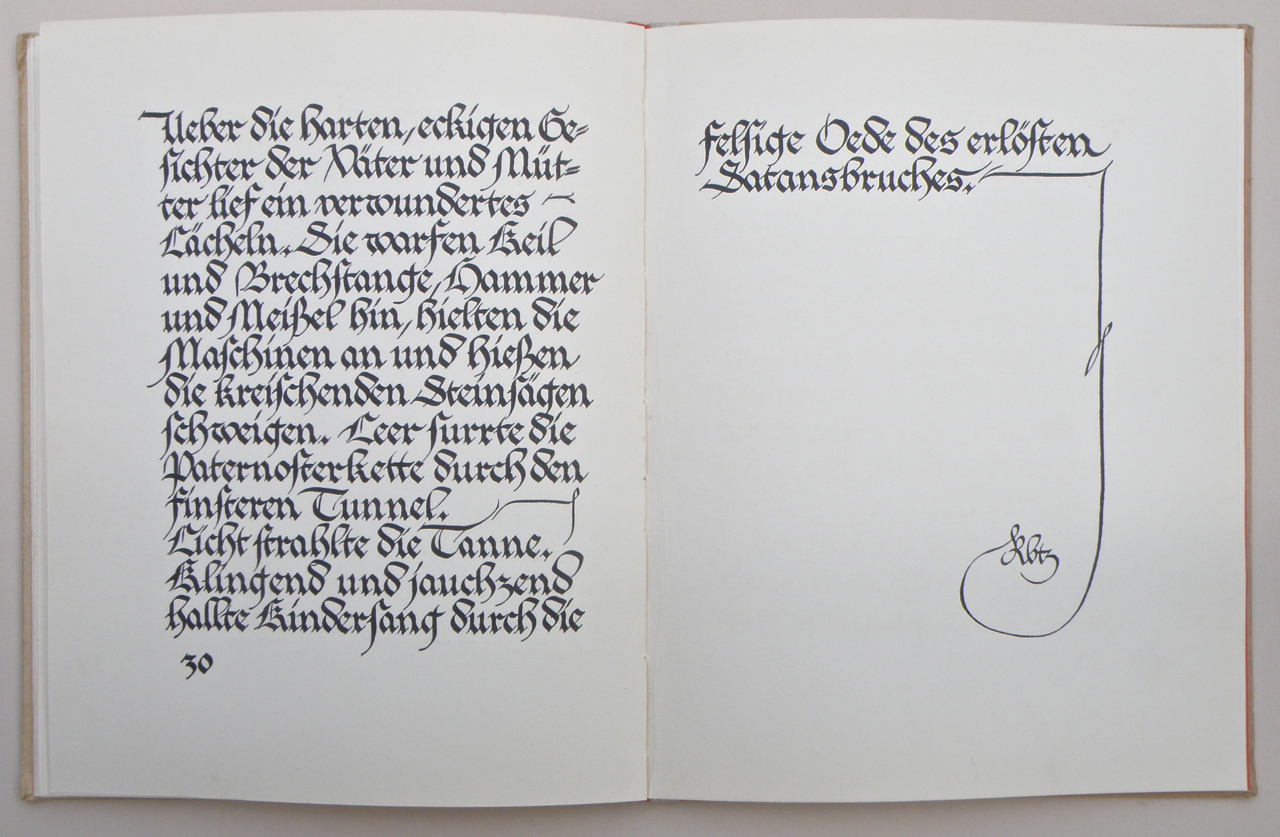 Ueber die harten, eckigen Ge=
sichter der Väter und Müt=
ter lief ein verwundertes
Lächeln. Sie warfen Keil
und Brechstange, Hammer
und Meißel hin, hielten die
Maschinen an und hießen
die kreischenden Steinsägen
schweigen. Leer surrte die
Paternosterkette durch den
finsteren Tunnel.
Licht strahlte die Tanne.
Klingend und jauchzend
hallte Kindersang durch die
30
felsige Oede des erlösten
Satansbruches.
Rbtz